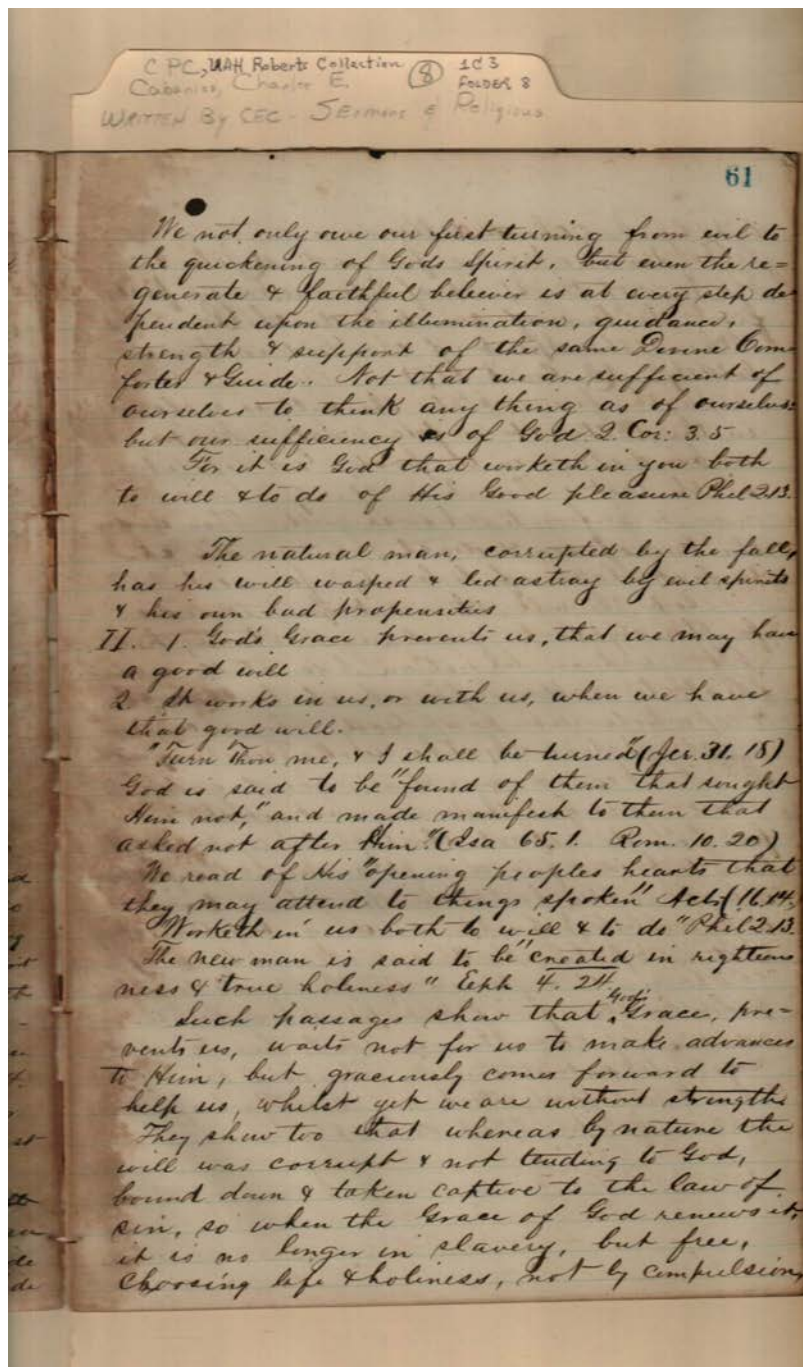 C PC, UAH Roberts Collection 8 1 of 3
Cabaniss, Charles E. FOLDER 8
WRITTEN By CEC - SErmons & Religious
61
We not only owe our first turning from evil to
the quickening of Gods Spirit, but even the re=
generate & faithful believer is at every step de
pendent upon the illumination, guidance,
strength & support of the same Divine Com
forter & Guide. Not that we are sufficient of
ourselves to think any thing as of ourselves:
but our sufficiency is of God 2. Cor: 3.5
For it is God that worketh in you both
to will & to do of His Good pleasure Phil 2.13.
The natural man, corrupted by the fall,
has his will warped & led astray by evil spirits
& his own bad propensities
II. 1. God's Grace prevents us, that we may have
a good will
2 It works in us, or with us, when we have
that good will.
"Turn Thou me, & I shall be turned" (Jer. 31. 18)
God is said to be "found of them that sought
Him not," and made manifest to them that
asked not after Him." (Isa 65. 1. Rom. 10. 20)
We read of His "opening peoples hearts that
they may attend to things spoken" Acts (16.14.
"Worketh in us both to will & to do" Phil 2.13.
The new man is said to be "created in righteous
ness & true holiness" Eph 4. 24
Such passages show that God's Grace, pre=
vents us, waits not for us to make advances
to Him, but graciously comes forward to
help us, whilst yet we are without strength
They show too that whereas by nature the
will was corrupt & not tending to God,
bound down & taken captive to the law of
sin, so when the Grace of God renews it,
it is no longer in slavery, but free,
choosing life & holiness, not by compulsion,